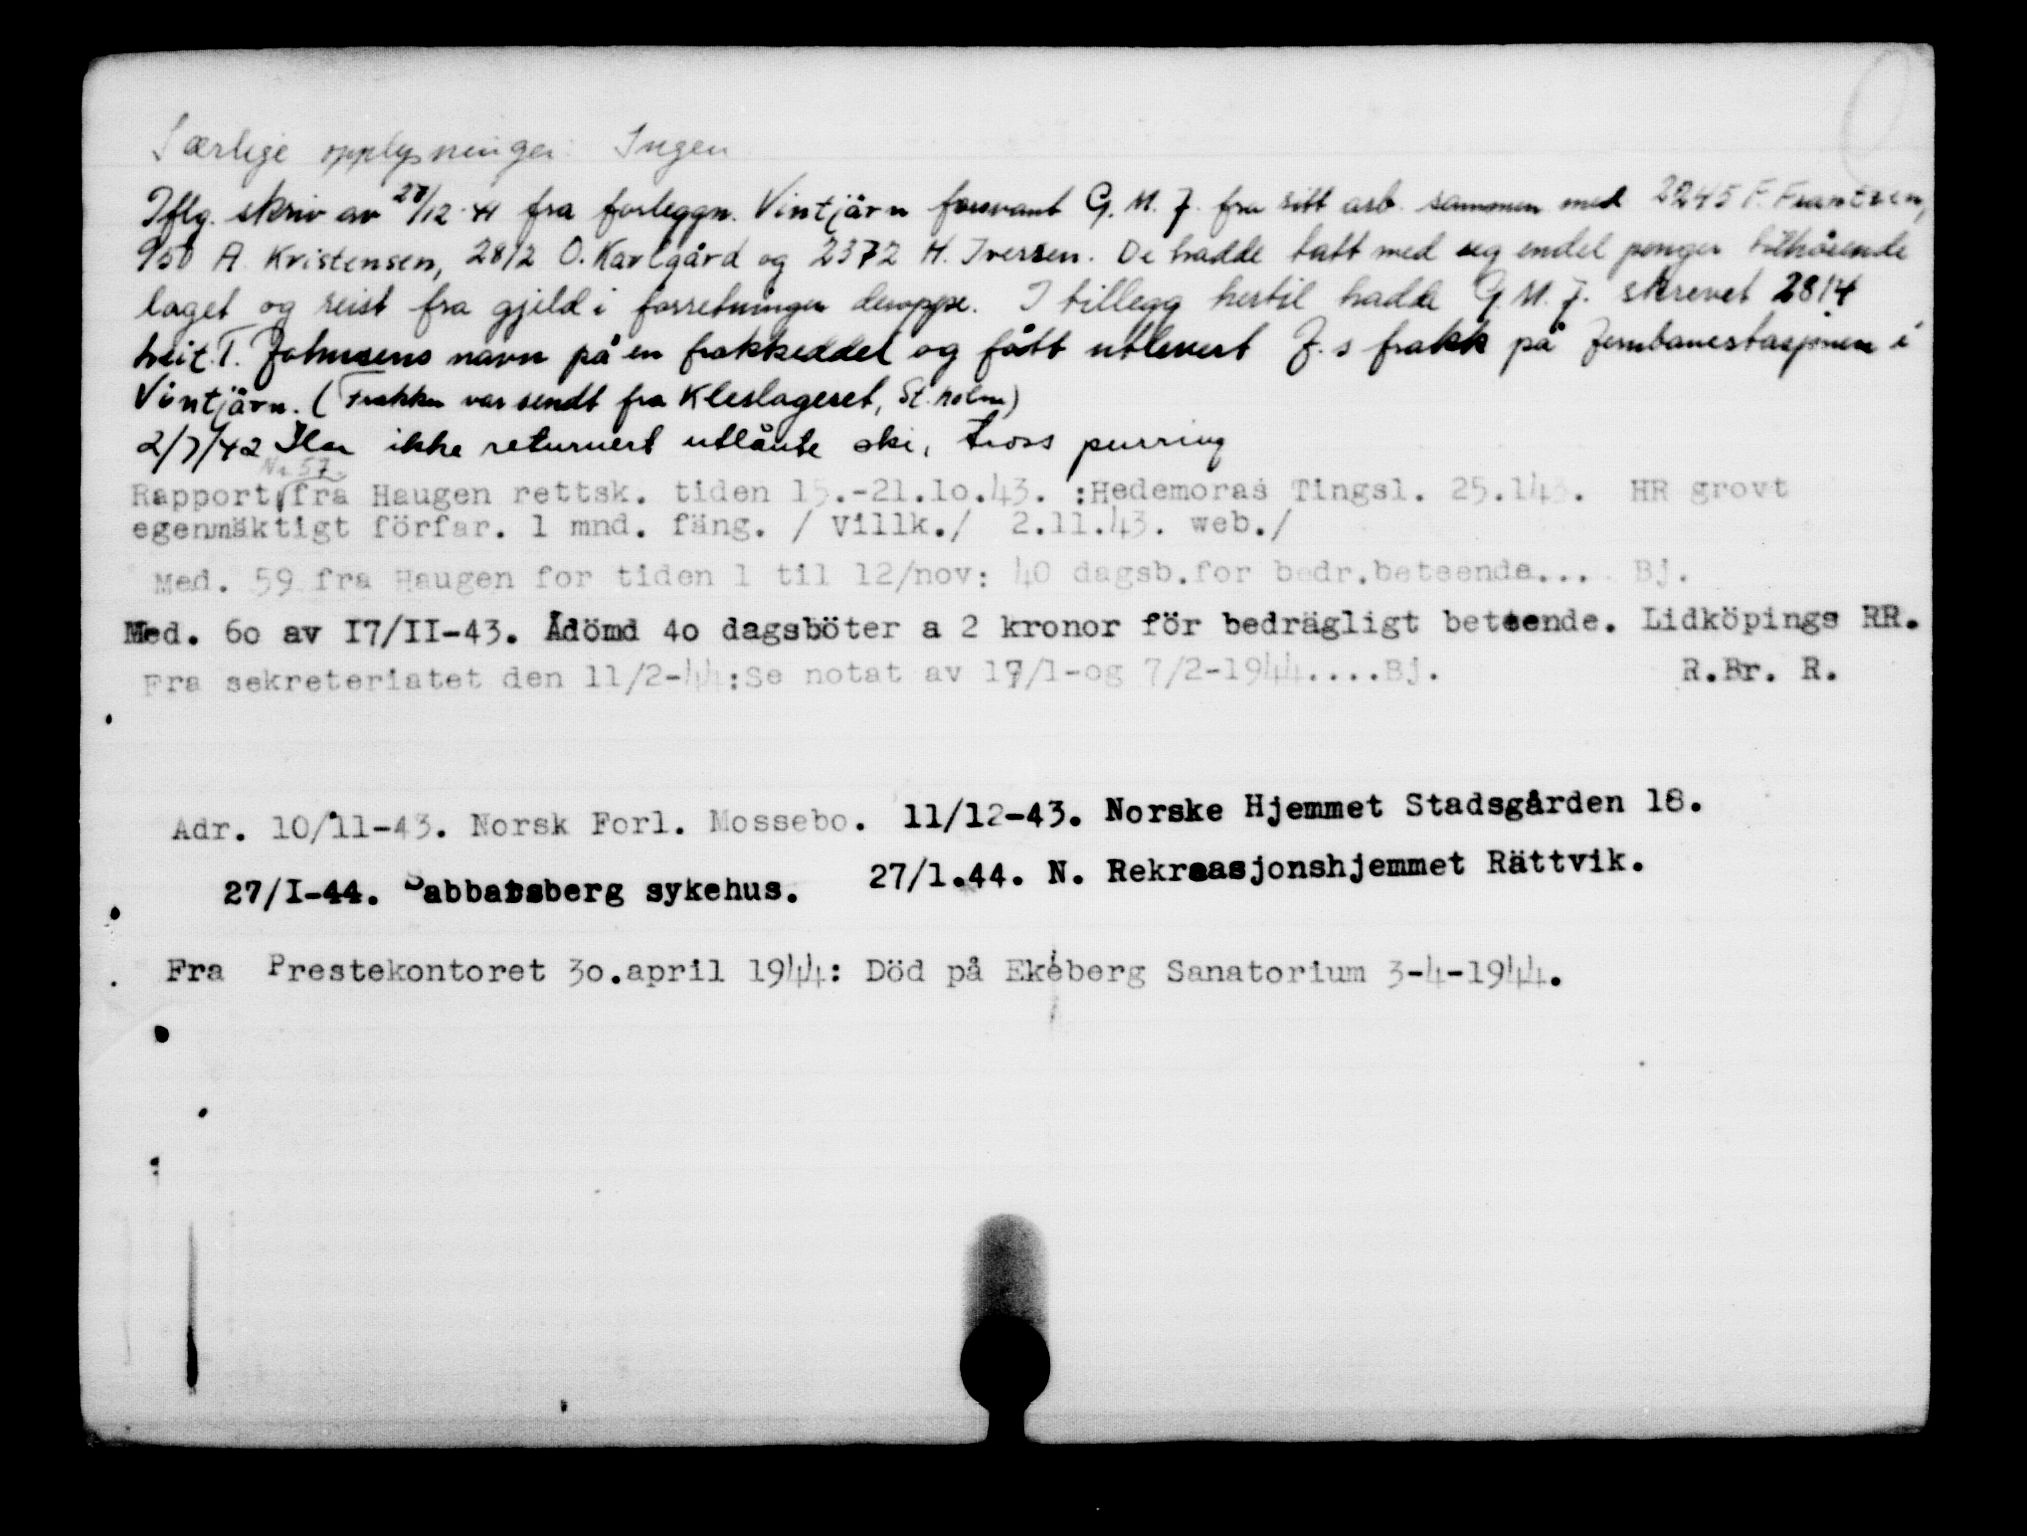 Særlige opplysninger: Ingen
Iflg. skriv av 27/12-41 fra forleggn. Vintjärn forsvant G. M. J. fra sitt arb. sammen med 2245 F. Frantzen,
950 A. Kristensen, 2812 O. Karlgård og 2372 H. Iversen. De hadde tatt med seg endel penger tilhørende
laget og reist fra gjeld i forretninger deroppe. I tillegg hertil hadde G. M. J. skrevet 2814
Reit. T. Johnsens navn på en frakkeddel og fått utlevert J.s frakk på Jernbanestasjonen i
Vintjärn. (Frakken var sendt fra Kleslageret, St.holm)
2/7/42 Har ikke returnert utlånte ski, tross purring
Nr 57
Rapport fra Haugen rettsk. tiden 15.-21.10.43. :Hedemoras Tingsl. 25.143. HR grovt
egenmäktigt förfar. 1 mnd. fäng. / Villk./ 2.11.43. web./
Med. 59 fra Haugen for tiden 1 til 12/nov: 40 dagsb.for bedr.beteende... Bj.
Med. 60 av I7/II-43. Ådömd 40 dagsböter a 2 kronor för bedrägligt beteende. Lidköpings RR.
Fra sekreteriatet den 11/2-44:Se notat av 17/1-og 7/2-1944....Bj. R.Br. R.
Adr. 10/11-43. Norsk Forl. Mossebo. 11/12-43. Norske Hjemmet Stadsgården 18.
27/I-44. Sabbatsberg sykehus. 27/1.44. N. Rekreasjonshjemmet Rättvik.
Fra Prestekontoret 30.april 1944: Död på Ekeberg Sanatorium 3-4-1944.